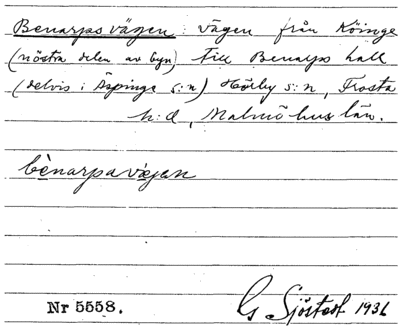 Benarpsvägen: vägen från Köinge
(nöstra delen av byn) till Benarps hall
(delvis i Äspinge s:n) Hörby s:n, Frosta
h:d, Malmöhus län.
bènarpavägen
Nr 5558.
G Sjöstedt 1936